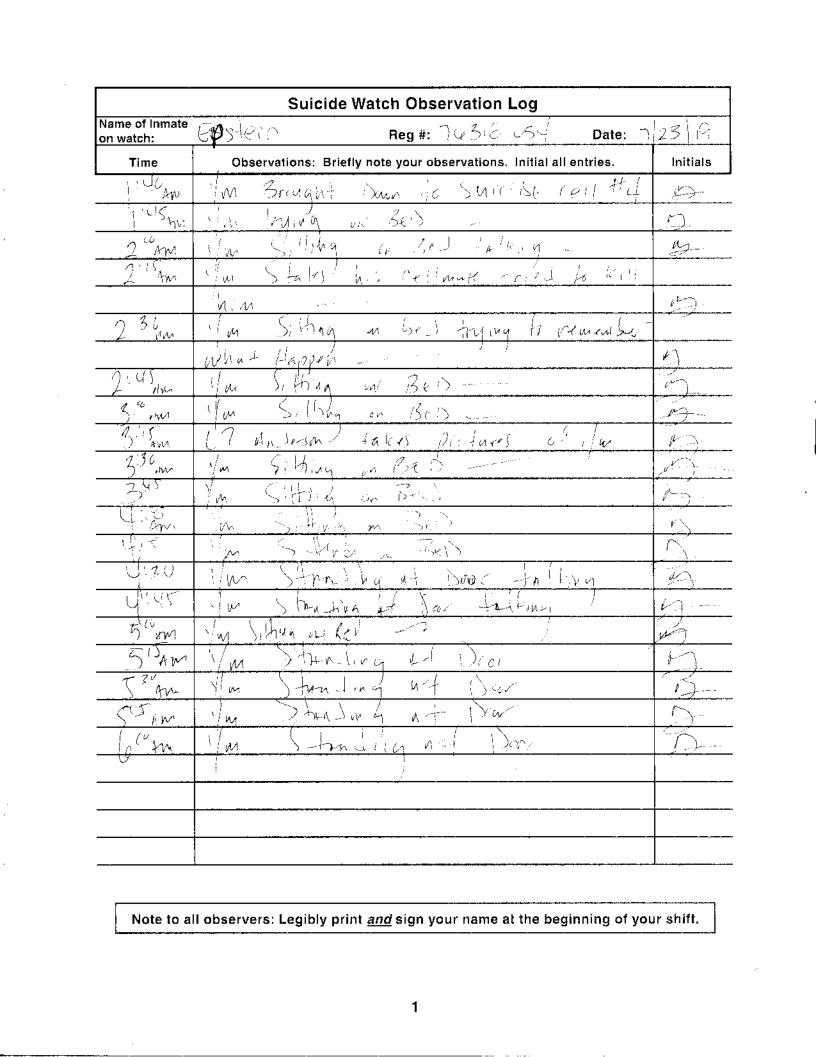 Suicide Watch Observation Log
Name of Inmate on watch: Epstein Reg #: 76318 054 Date: 7/23/19
Time Observations: Briefly note your observations. Initial all entries. Initials
1:40 AM I/m Brought Down to Suicide cell #4
1:45 AM I/m laying on BED
2:00 AM I/m Sitting on Bed talking
2:15 AM I/m States his cellmate tried to kill
him
2:30 AM I/m Sitting on bed trying to remember
what Happen
2:45 AM I/m Sitting on BED
3:00 AM I/m Sitting on BED
3:15 AM LT Anderson takes pictures of I/m
3:30 AM I/m Sitting on BED
3:45 I/m Sitting on Bed
4:00 AM I/m Sitting on BED
4:15 I/m Sitting on BED
4:30 I/m Standing at Door talking
4:45 I/m Standing at Door talking
5:00 AM I/m Sitting on Bed
5:15 AM I/m Standing at Door
5:30 AM I/m Standing at Door
5:45 AM I/m Standing at Door
6:00 AM I/m Standing at Door
Note to all observers: Legibly print and sign your name at the beginning of your shift.
1